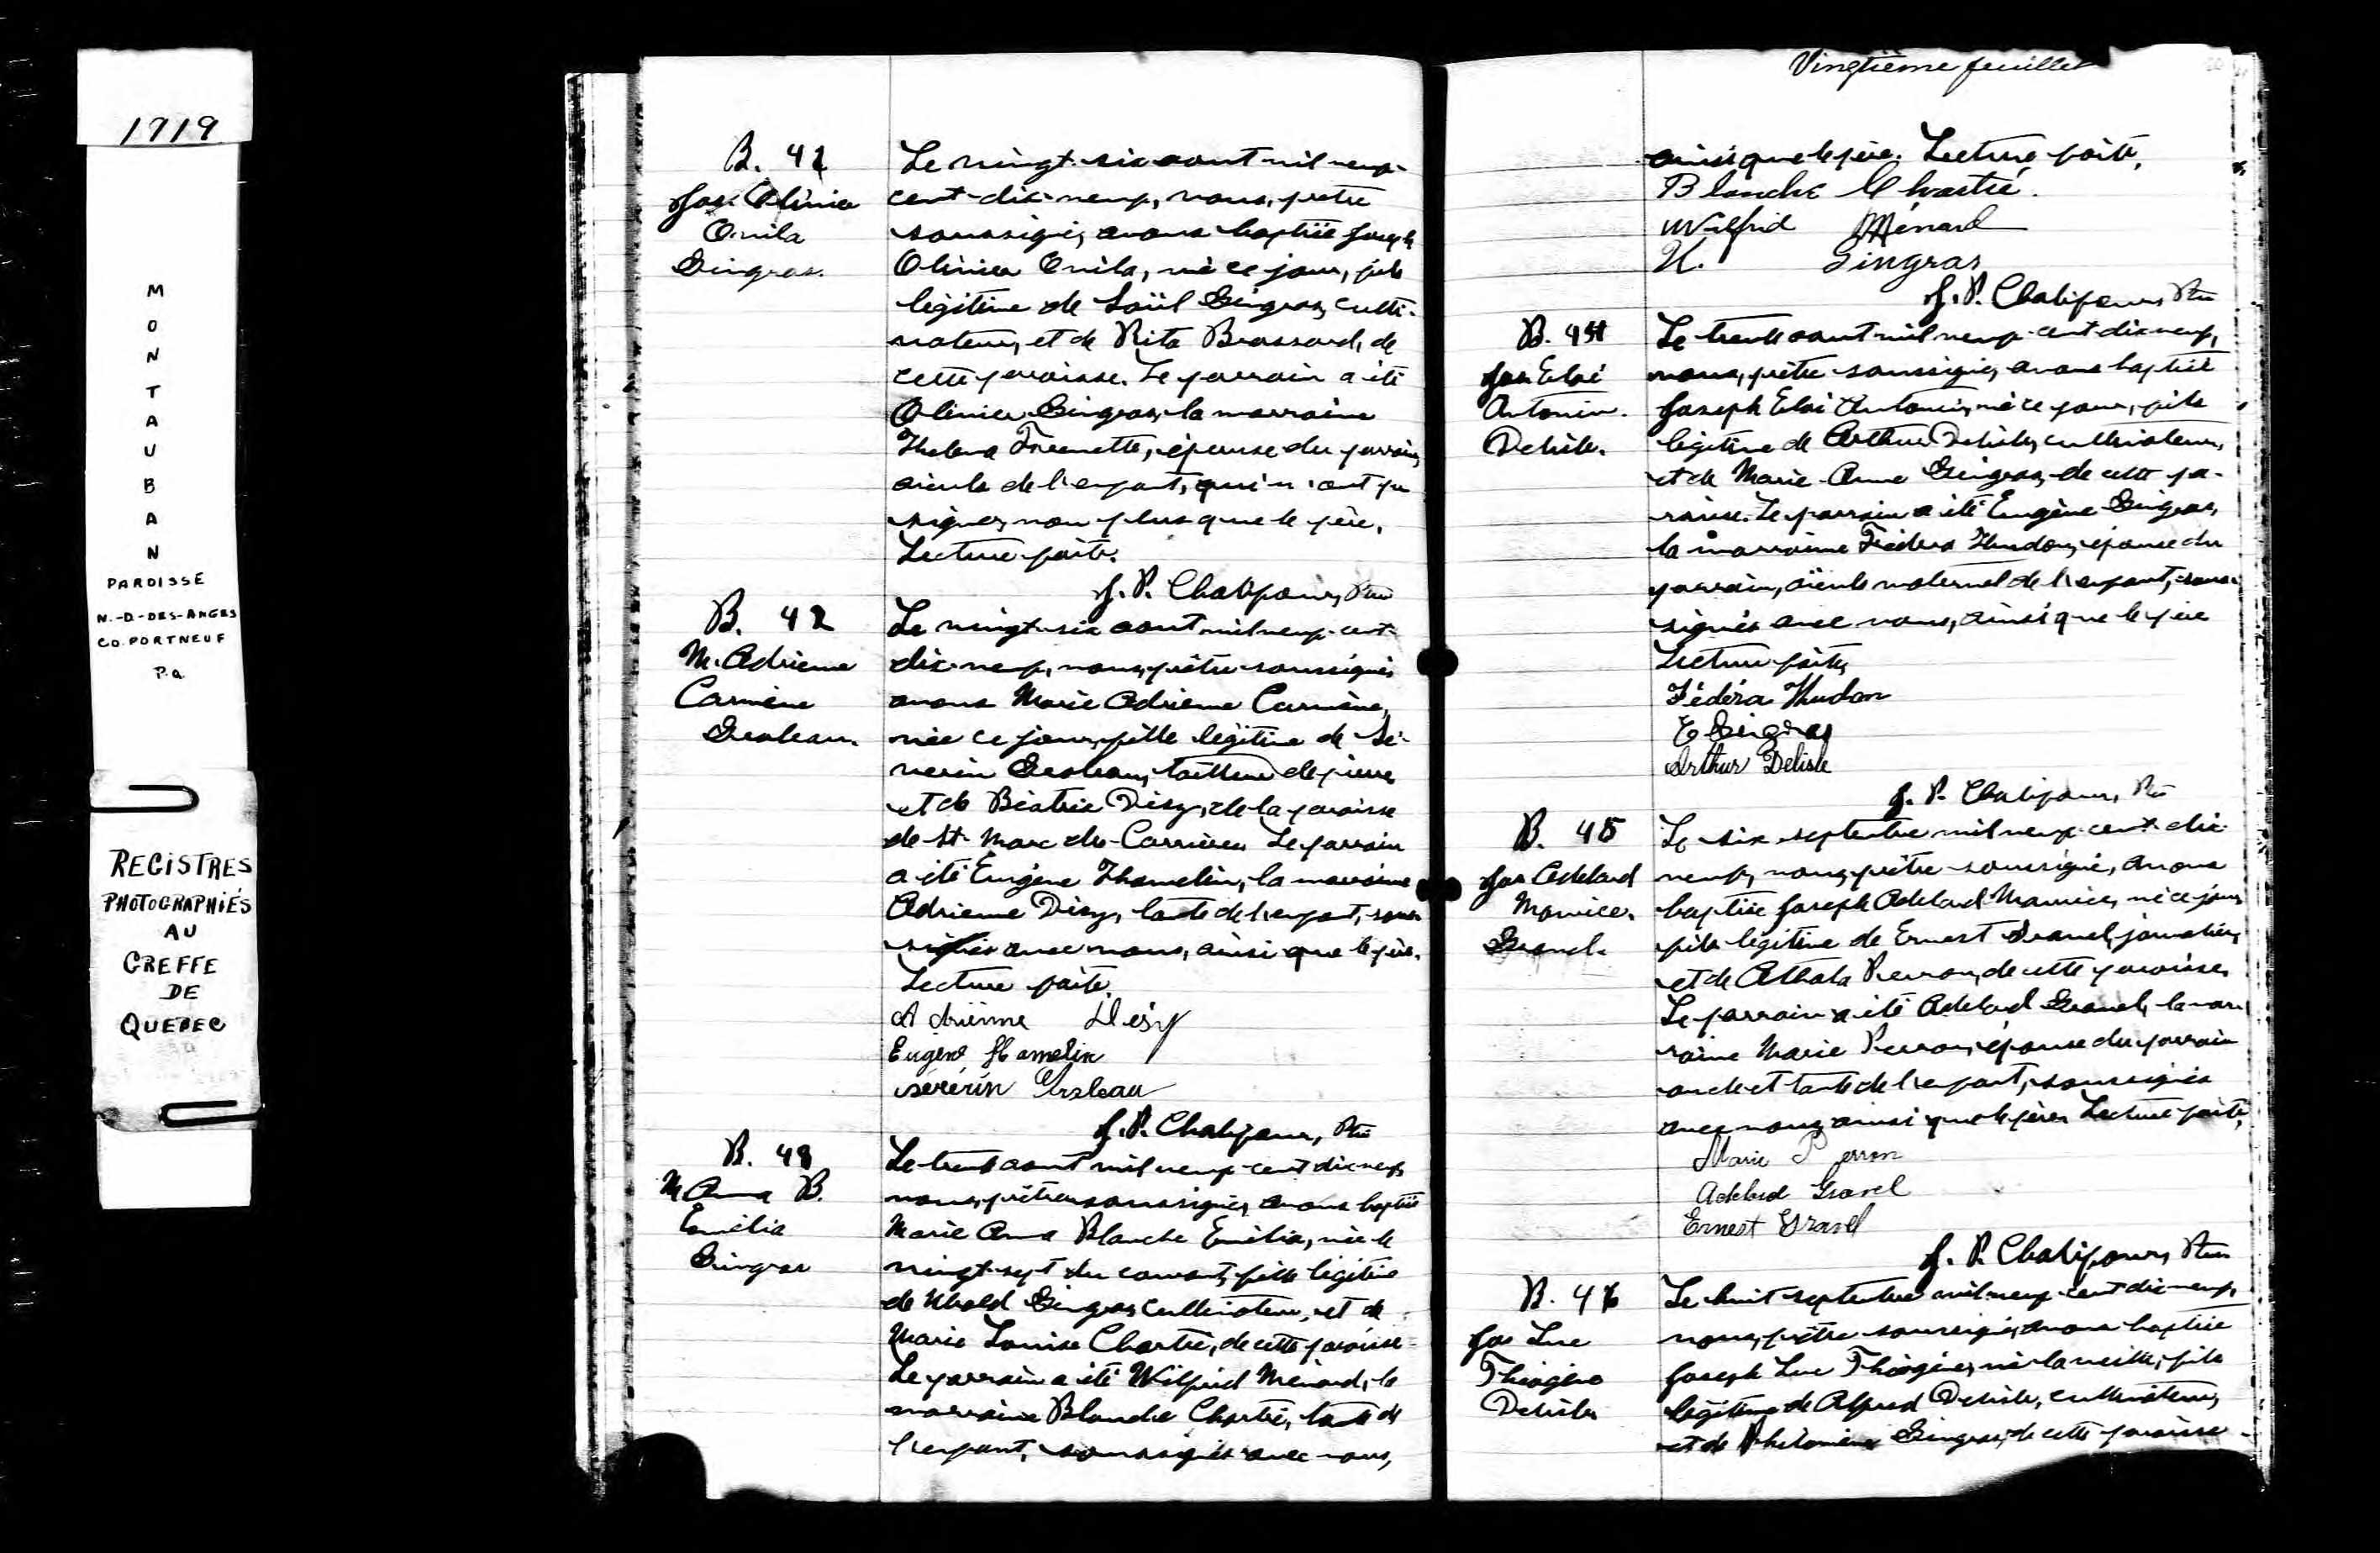 1919
M
O
N
T
A
U
B
A
N
PAROISSE
N.-D.-DES-ANGES
CO. PORTNEUF
P.Q.
REGISTRES
PHOTOGRAPHIÉS
AU
GREFFE
DE
QUEBEC
B. 41
Jos. Olivier
Ovila
Gingras.
Le vingt-six août mil neuf-
cent-dix-neuf, nous, prêtre
soussigné, avons baptisé Joseph
Olivier Ovila, né ce jour, fils
légitime de Saül Gingras, culti-
vateur, et de Rita Brossard, de
cette paroisse. Le parrain a été
Olivier Gingras, la marraine
Frenette, épouse du parrain,
aieuls de l'enfant, qui n'ont pu
signer, non plus que le père.
Lecture faite.
J. P. Chalifour, Ptre
B. 42
M. Adrienne
Carmène
Grosleau.
Le vingt-six août mil neuf-cent-
dix-neuf, nous, prêtre soussigné
avons Marie Adrienne Carmène,
née ce jour, fille légitime de Sé-
verin Grosleau, tailleur de pierre
et de Béatrice Désy, de la paroisse
de St-Marc des-Carrières. Le parrain
a été Eugène Hamelin, la marraine
Adrienne Désy, tante de l'enfant, sous-
signés avec nous, ainsi que le père.
Lecture faite.
Adrienne Désy
Eugène Hamelin
Sévérin Grosleau
J. P. Chalifour, Ptre
B. 43
M Anna B.
Emélia
Gingras
Le trente août mil neuf-cent dix-neuf,
nous, prêtre soussigné, avons baptisé
Marie Anna Blanche Emélia, née le
vingt-sept du courant, fille légitime
de Ubald Gingras, cultivateur, et de
Marie Louise Chartré, de cette paroisse.
Le parrain a été Wilfrid Ménard, la
marraine Blanche Chartré, tante de
l'enfant, soussignés avec nous,
Vingtième feuillet
ainsi que le père. Lecture faite.
Blanche Chartré.
Wilfrid Ménard
U. Gingras
J. P. Chalifour, Ptre
B. 44
Jos Eloi
Antonin.
Delisle.
Le trente août mil neuf-cent-dix-neuf,
nous, prêtre soussigné, avons baptisé
Joseph Eloi Antonin, né ce jour, fils
légitime de Arthur Delisle, cultivateur,
et de Marie-Anne Gingras, de cette pa-
roisse. Le parrain a été Eugène Gingras,
la marraine Fédéra Hudon, épouse du
parrain, aïeuls maternel de l'enfant, sous-
signés avec nous, ainsi que le père
Lecture faite,
Fédéra Hudon
E Gingras
Arthur Delisle
J. P. Chalifour, Ptre
B. 45
Jos Adélard
Maurice
Gravel.
Le six septembre mil neuf-cent-dix
neuf, nous, prêtre soussigné, avons
baptisé Joseph Adélard Maurice, né ce jour,
fils légitime de Ernest Gravel, journalier,
et de Athala Perron, de cette paroisse.
Le parrain a été Adélard Gravel, la mar-
raine Marie Perron, épouse du parrain
oncle et tante de l'enfant, soussignés
avec nous, ainsi que le père. Lecture faite.
Marie Perron
Adélard Gravel
Ernest Gravel
J. P. Chalifour, Ptre
B. 46
Jos Luc
Théogène
Delisle
Le huit septembre mil-neuf-cent dix-neuf,
nous, prêtre soussigné, avons baptisé
Joseph Luc Théogène, né la veille, fils
légitime de Alfred Delisle, cultivateur,
et de Philomène Gingras, de cette paroisse